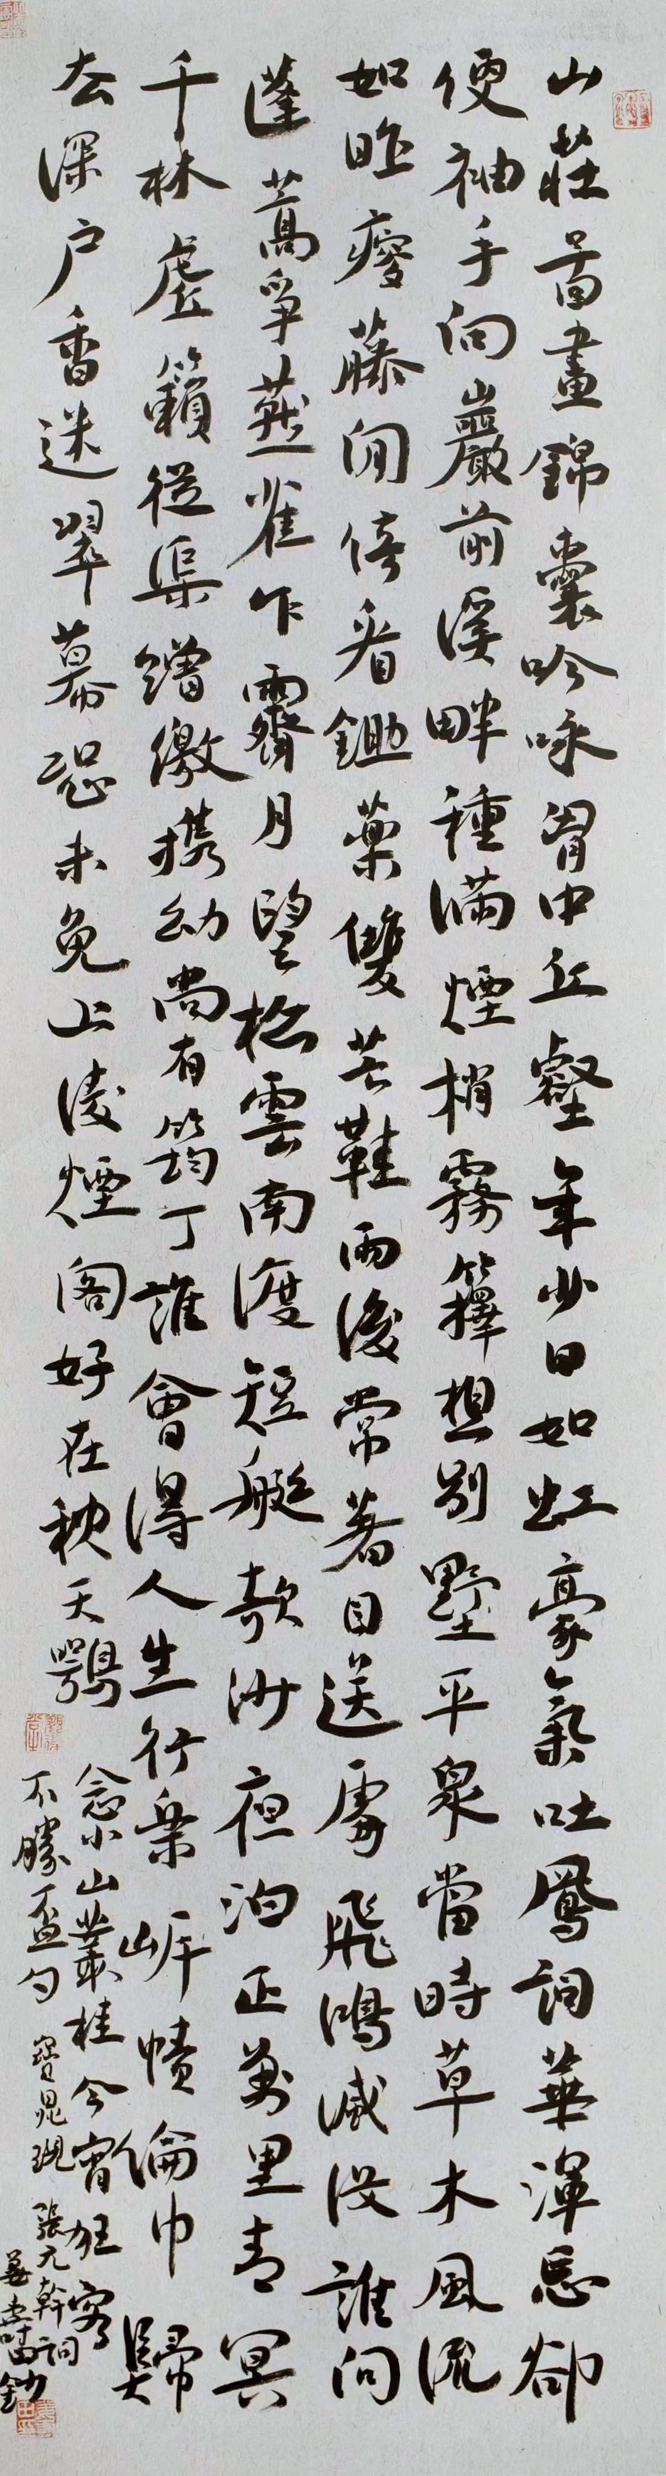 山莊啚畫錦囊吟咏胷中丘壑年少日如虹豪氣吐鳳詞華渾忘卻
便袖手向巖前溪畔種滿煙梢霧籜想別墅平泉當時草木風流
如昨瘦藤閒倚看鋤藥雙芒鞋雨後常著目送處飛鴻滅沒誰問
蓬蒿爭燕雀乍霽月望松雲南渡短艇欹沙夜泊正萬里青冥
千林虛籟從渠繒繳攜幼尚有筠丁誰會得人生行樂岸幘綸巾歸
去深户香迷翠幕恐未免上凌煙阁好在秋天鶚
念小山叢桂今宵狂客
不勝盃勺 寶鼎現 張元幹詞
鈔